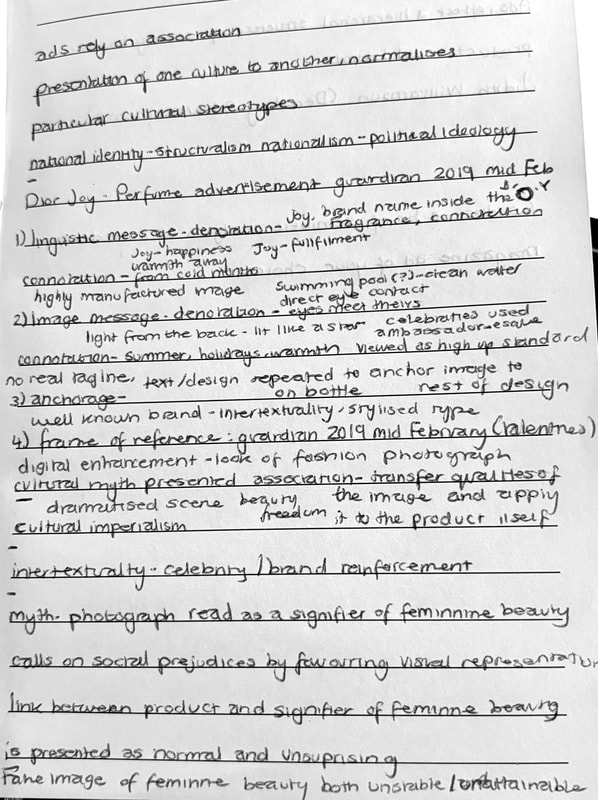 ads rely on association
presentation of one culture to another, normalises
particular cultural stereotypes
national identity - structuralism nationalism - political ideology
Dior Joy - Perfume advertisement guardian 2019 mid Feb
Joy, brand name inside the O.Y
1) linguistic message - denotation - fragrance, connotation
Joy - happiness Joy - fullfilment
warmth away
connotation - from cold months
highly manufactured image swimming pool (?) - clean water
direct eye contact
2) Image message - denotation - eyes meet theirs
light from the back - lit like a star celebraties used
ambassador-esque
connotation - summer, holidays, warmth viewed as high up standard
no real tagline, text/design repeated to anchor image to
3) anchorage - on bottle rest of design
well known brand - intertextuality, stylised type
4) frame of reference: guardian 2019 mid February (Valentines)
digital enhancement - look of fashion photograph
cultural myth presented association - transfer qualities of
dramatised scene beauty the image and apply
cultural imperialism freedom it to the product itself
intertextuality - celebrity / brand reinforcement
myth - photograph read as a signifier of feminnine beauty
calls on social prejudices by favouring visual representation
link between product and signifier of feminne beauty
is presented as normal and unsuprising
Fake image of feminne beauty both unstable / unattainable